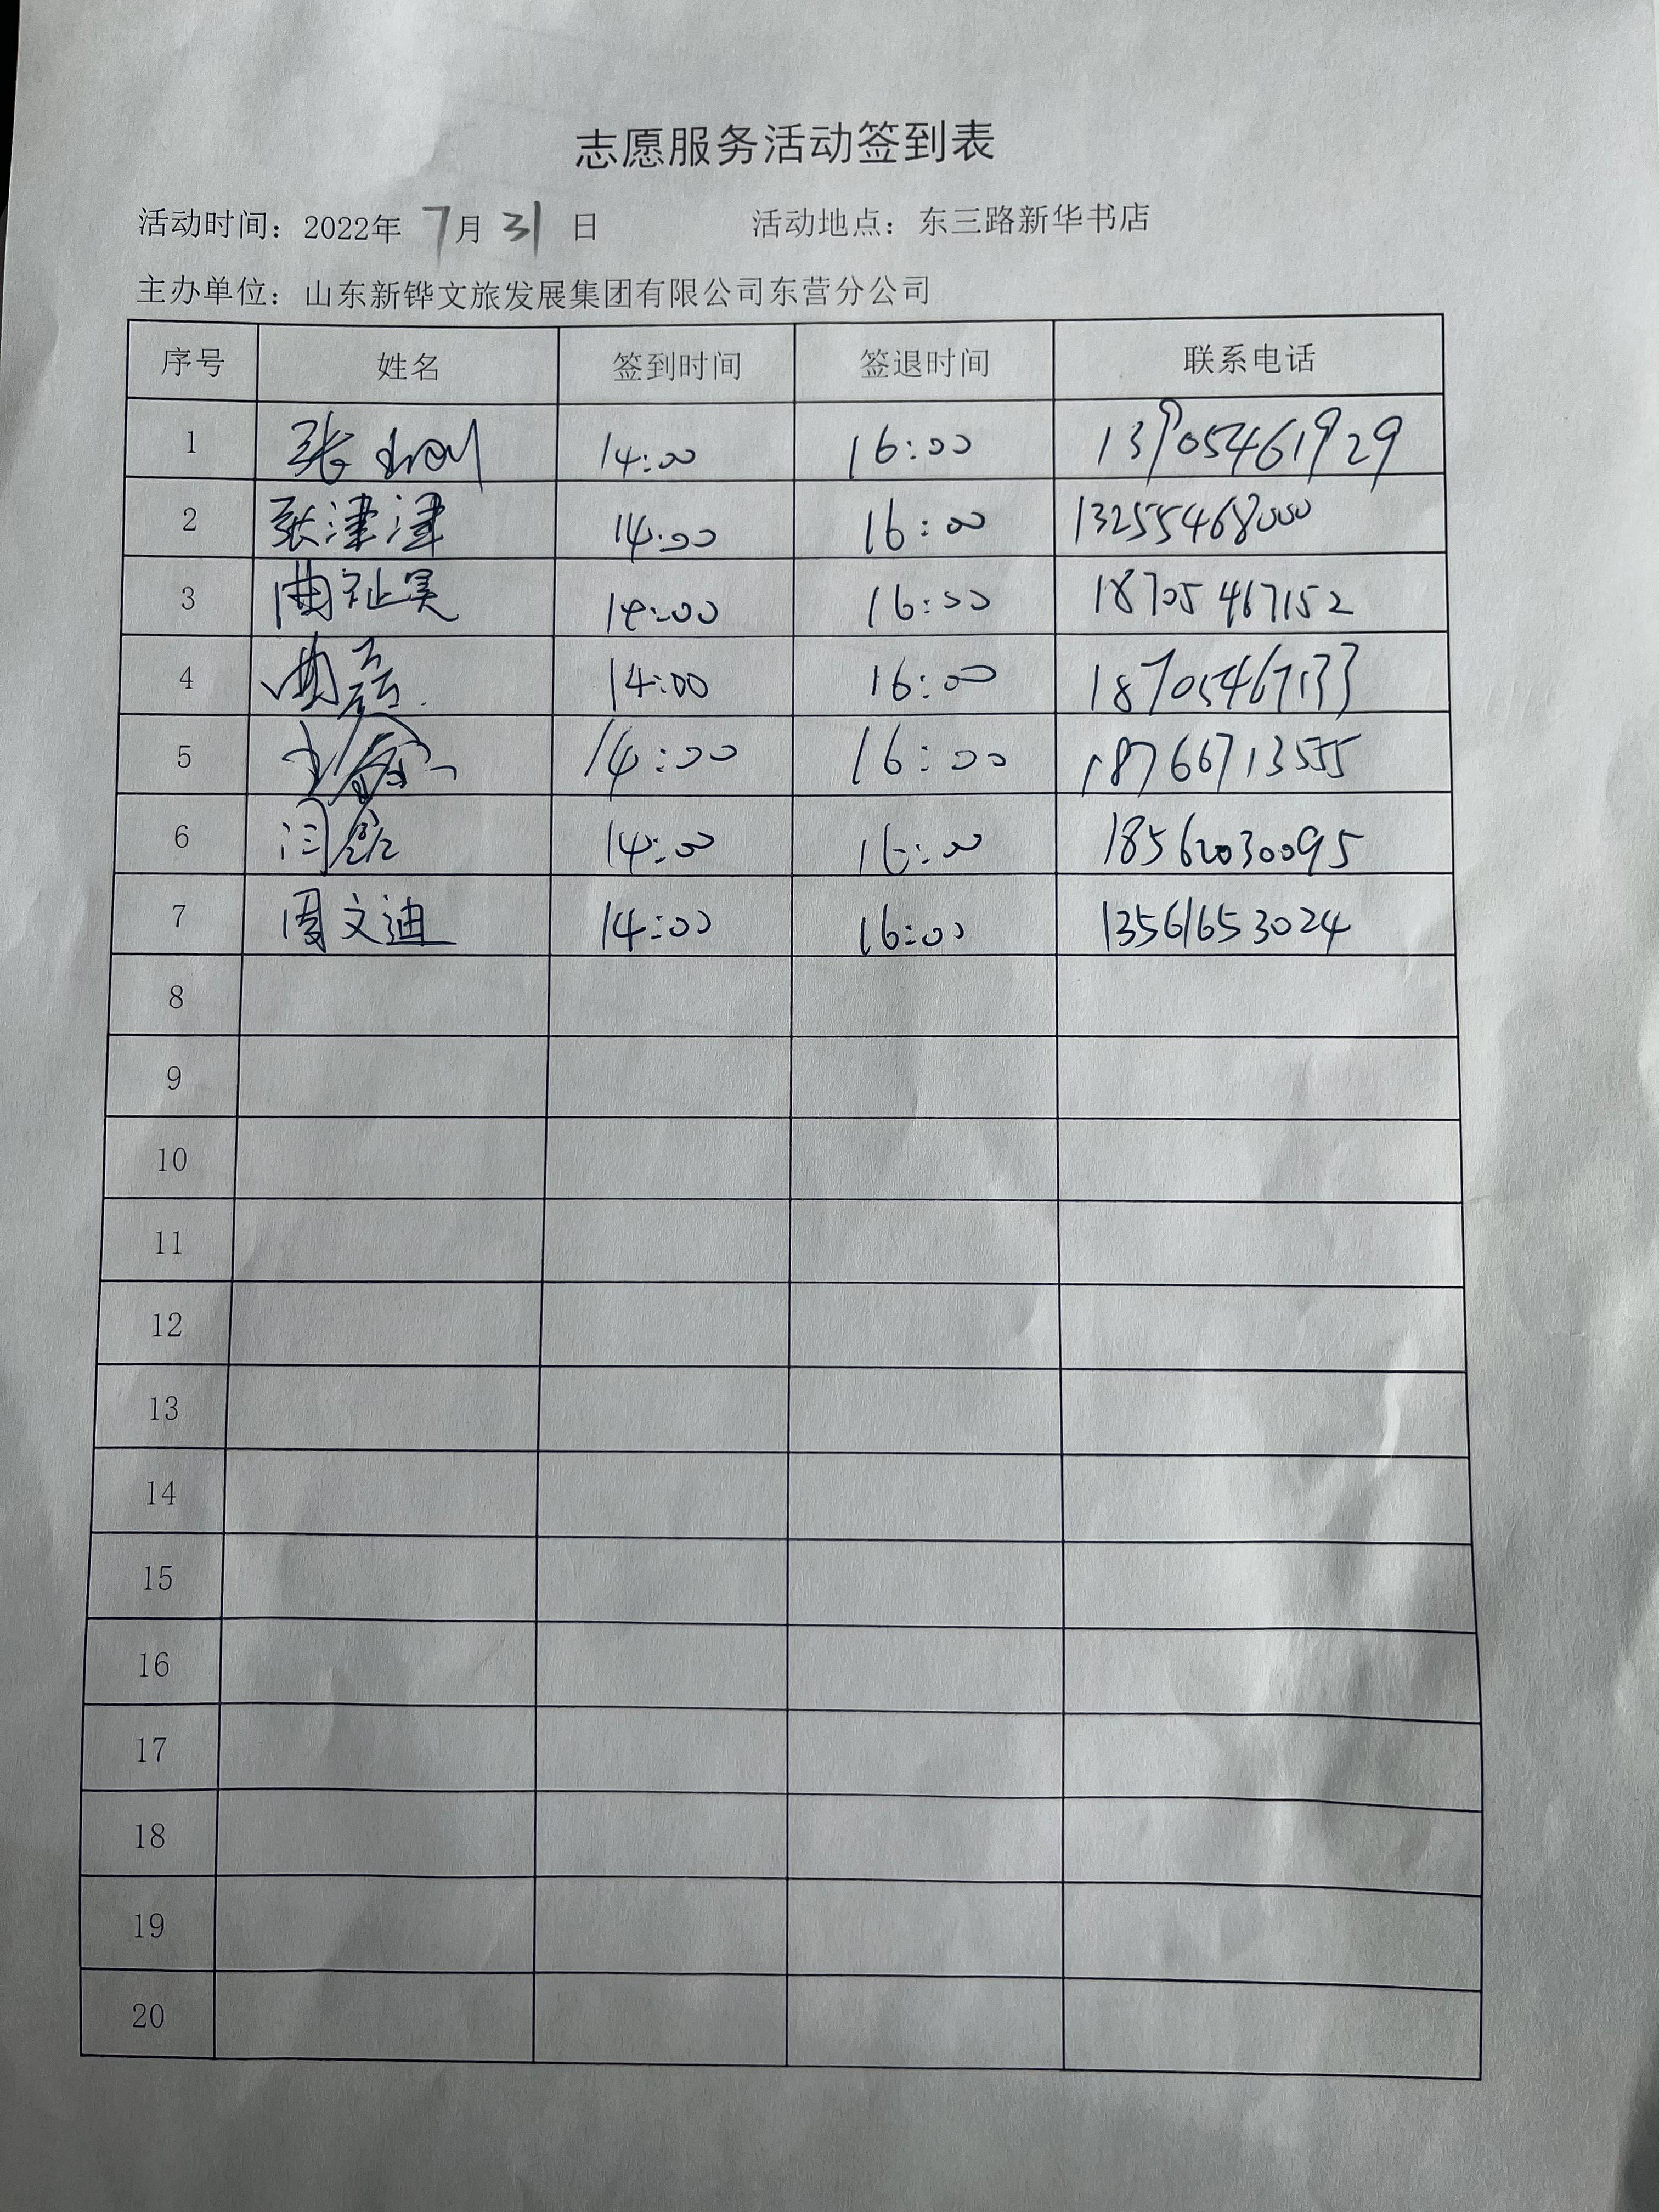 志愿服务活动签到表
活动时间：2022年 7月 31 日 活动地点：东三路新华书店
主办单位：山东新铧文旅发展集团有限公司东营分公司
序号 姓名 签到时间 签退时间 联系电话
1 张 14:00 16:00 13905461929
2 张津津 14:00 16:00 13255468000
3 曲祉昊 14:00 16:00 18705467152
4 曲 14:00 16:00 18705467133
5 14:00 16:00 18766713555
6 闫 14:00 16:00 18562030095
7 周文迪 14:00 16:00 13561653024
8
9
10
11
12
13
14
15
16
17
18
19
20